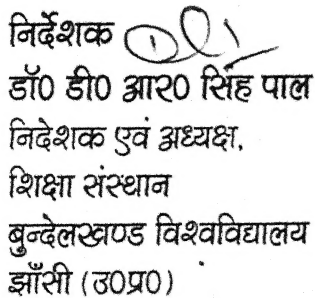 निर्देशक
डॉ0 डी0 आर0 सिंह पाल
निदेशक एवं अध्यक्ष,
शिक्षा संस्थान
बुन्देलखण्ड विश्वविद्यालय
झाँसी (उ0प्र0)